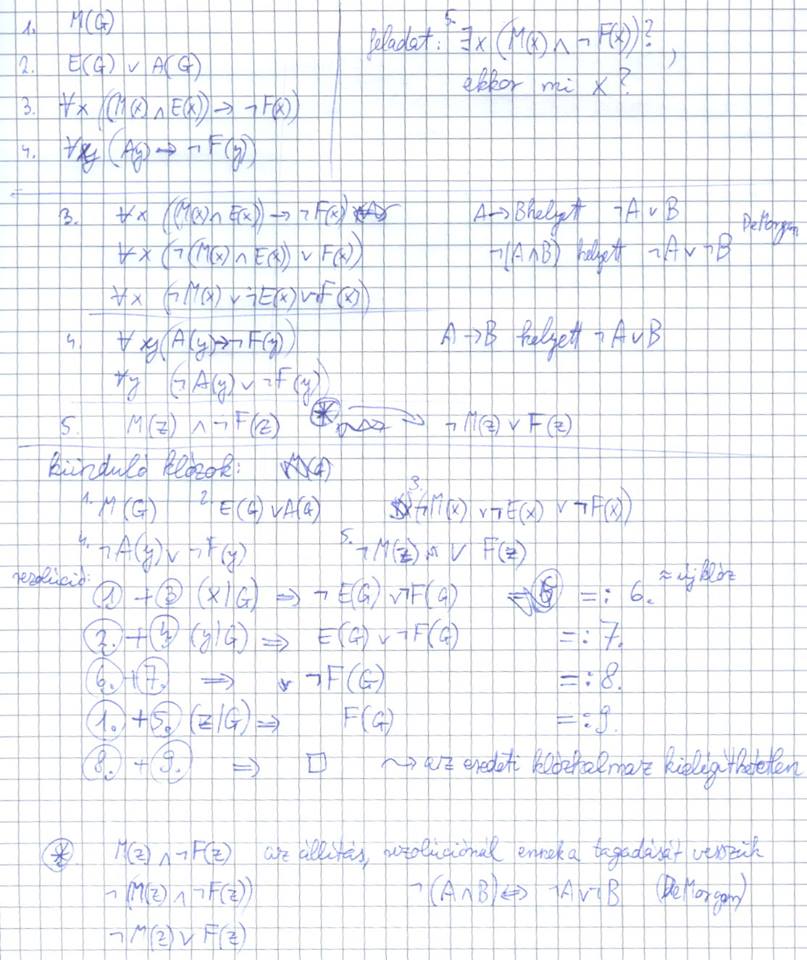 1. M(G)
feladat: 5. ∃x (M(x) ∧ ¬F(x))?,
2. E(G) ∨ A(G)
ekkor mi x?
3. ∀x ((M(x) ∧ E(x)) → ¬F(x))
4. ∀y (Ay) → ¬F(y))
3. ∀x ((M(x) ∧ E(x)) → ¬F(x))
A→B helyett ¬A ∨ B
∀x (¬(M(x) ∧ E(x)) ∨ F(x))
¬(A∧B) helyett ¬A ∨ ¬B DeMorgan
∀x (¬M(x) ∨ ¬E(x) ∨ ¬F(x))
4. ∀ y (A(y) → ¬F(y))
A→B helyett ¬A ∨ B
∀y (¬A(y) ∨ ¬F(y))
5. M(z) ∧ ¬F(z) * ¬M(z) ∨ F(z)
kiinduló klózok:
1. M(G) 2. E(G) ∨ A(G) 3. (¬M(x) ∨ ¬E(x) ∨ ¬F(x))
4. ¬A(y) ∨ ¬F(y) 5. ¬M(z) ∨ F(z)
rezolúció:
1 + 3 (x|G) ⇒ ¬E(G) ∨ ¬F(G) =: 6. ≈ új klóz
2. + 4 (y|G) ⇒ E(G) ∨ ¬F(G) =: 7.
6. + 7. ⇒ ¬F(G) =: 8.
1. + 5. (z|G) ⇒ F(G) =: 9.
8. + 9. ⇒ □ ⇝ az eredeti klózhalmaz kielégíthetetlen
* M(z) ∧ ¬F(z) az állítás, rezolúciónál ennek a tagadását vesszük
¬(M(z) ∧ ¬F(z)) ¬(A∧B) ⇔ ¬A ∨ ¬B (DeMorgan)
¬M(z) ∨ F(z)